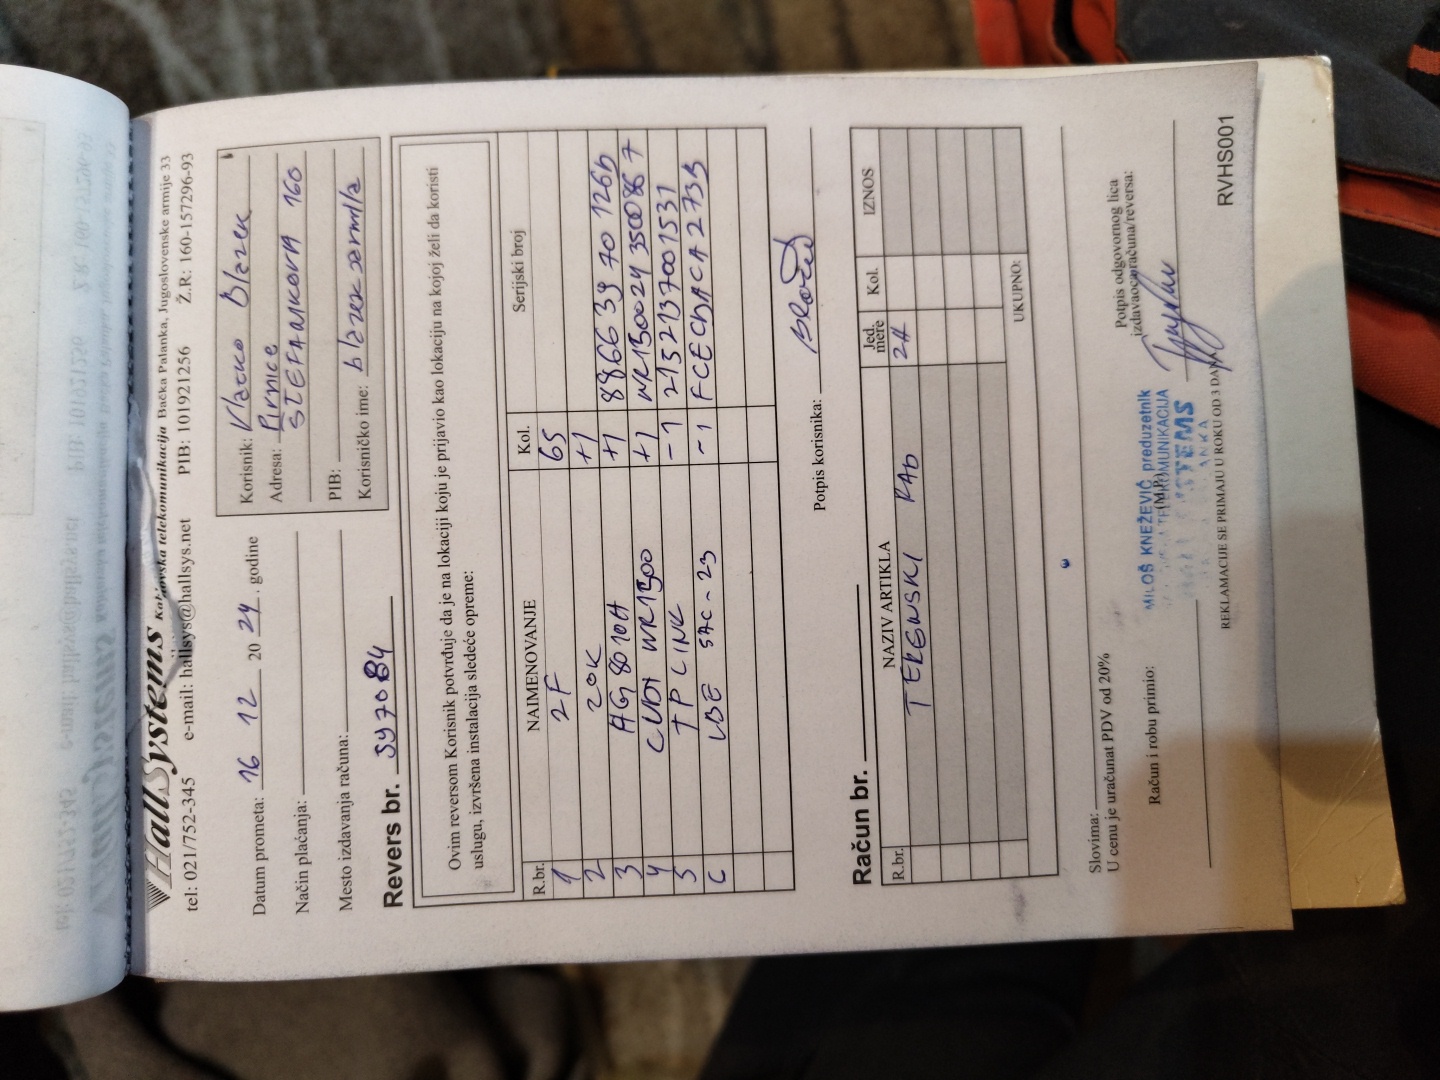 HallSystems Kablovska telekomunikacija Bačka Palanka, Jugoslovenske armije 33
tel: 021/752-345 e-mail: hallsys@hallsys.net PIB: 101921256 Ž.R: 160-157296-93
Datum prometa: 16 12 20 24. godine
Način plaćanja:
Mesto izdavanja računa:
Korisnik: Vlatko Blazek
Adresa: Pivnice
STEFANIKOVA 160
PIB:
Korisničko ime:
Revers br.
Ovim reversom Korisnik potvrđuje da je na lokaciji koju je prijavio kao lokaciju na kojoj želi da koristi
uslugu, izvršena instalacija sledeće opreme:
R.br. NAIMENOVANJE Kol. Serijski broj
1 2F 65
2 ZOK +1
3 +1
4 CUDY WR1300 +1
5 TP LINK -1 2152137001531
6 LBE 5AC-23 -1
Potpis korisnika:
Račun br.
R.br. NAZIV ARTIKLA Jed. mere Kol. IZNOS
TERENSKI RAD 2H
UKUPNO:
Slovima:
U cenu je uračunat PDV od 20%
Račun i robu primio:
Potpis odgovornog lica
izdavaoca računa/reversa:
(M.P.)
MILOŠ KNEŽEVIĆ preduzetnik
REKLAMACIJE SE PRIMAJU U ROKU OD 3 DANA
RVHS001